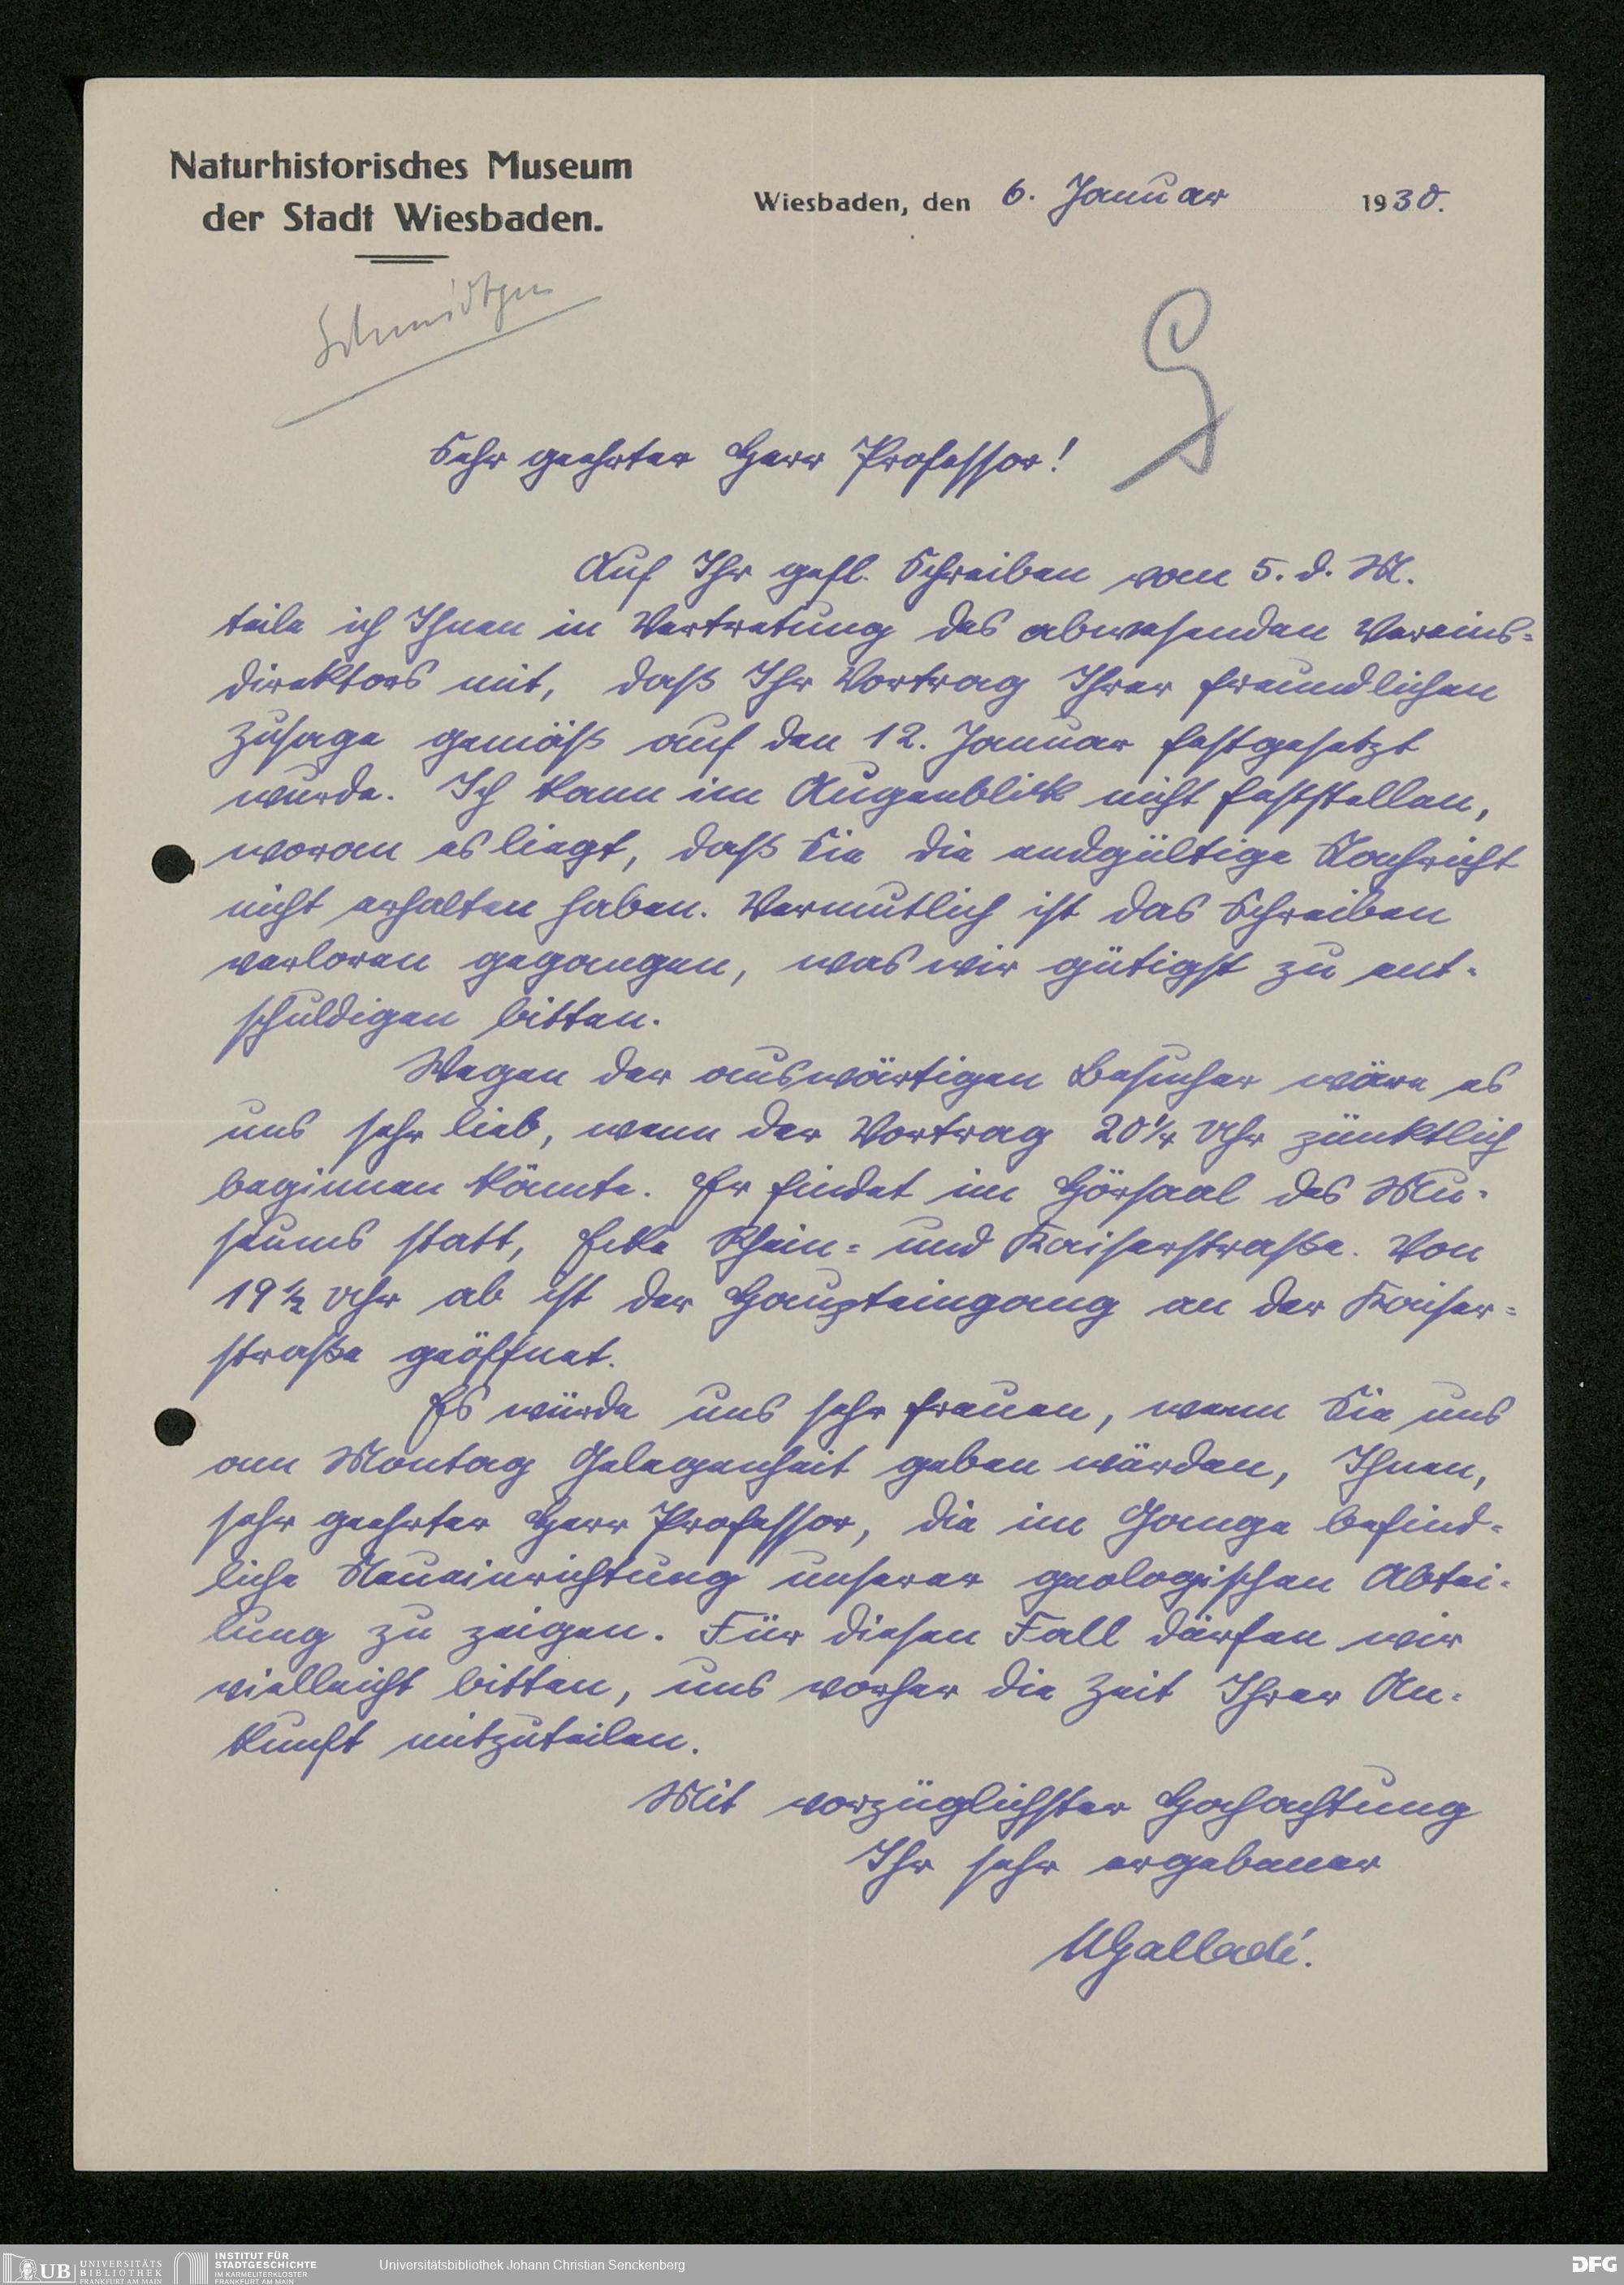 Naturhistorisches Museum
der Stadt Wiesbaden.
Wiesbaden, den 6. Januar 1930.
Schmidtgen
Sehr geehrter Herr Professor!
Auf Ihr gefl. Schreiben vom 5. d. M.
teile ich Ihnen in Vertretung des abwesenden Vereins=
direktors mit, daß Ihr Vortrag Ihrer freundlichen
Zusage gemäß auf den 12. Januar festgesetzt
wurde. Ich kann im Augenblick nicht feststellen,
woran es liegt, daß Sie die endgültige Nachricht
nicht erhalten haben. Vermutlich ist das Schreiben
verloren gegangen, was wir gütigst zu ent-
schuldigen bitten.
Wegen der auswärtigen Besucher wäre es
uns sehr lieb, wenn der Vortrag 20¼ Uhr pünktlich
beginnen könnte. Er findet im Hörsaal des Mu-
seums statt, Ecke Rhein= und Kaiserstraße. Von
19½ Uhr ab ist der Haupteingang an der Kaiser=
straße geöffnet.
Es würde uns sehr freuen, wenn Sie uns
am Montag Gelegenheit geben würden, Ihnen,
sehr geehrter Herr Professor, die im Gange befind-
liche Neueinrichtung unserer geologischen Abtei-
lung zu zeigen. Für diesen Fall dürfen wir
vielleicht bitten, uns vorher die Zeit Ihrer An-
kunft mitzuteilen.
Mit vorzüglichster Hochachtung
Ihr sehr ergebener
UB UNIVERSITÄTS
BIBLIOTHEK
FRANKFURT AM MAIN
INSTITUT FÜR
STADTGESCHICHTE
IM KARMELITERKLOSTER
FRANKFURT AM MAIN
Universitätsbibliothek Johann Christian Senckenberg
DFG